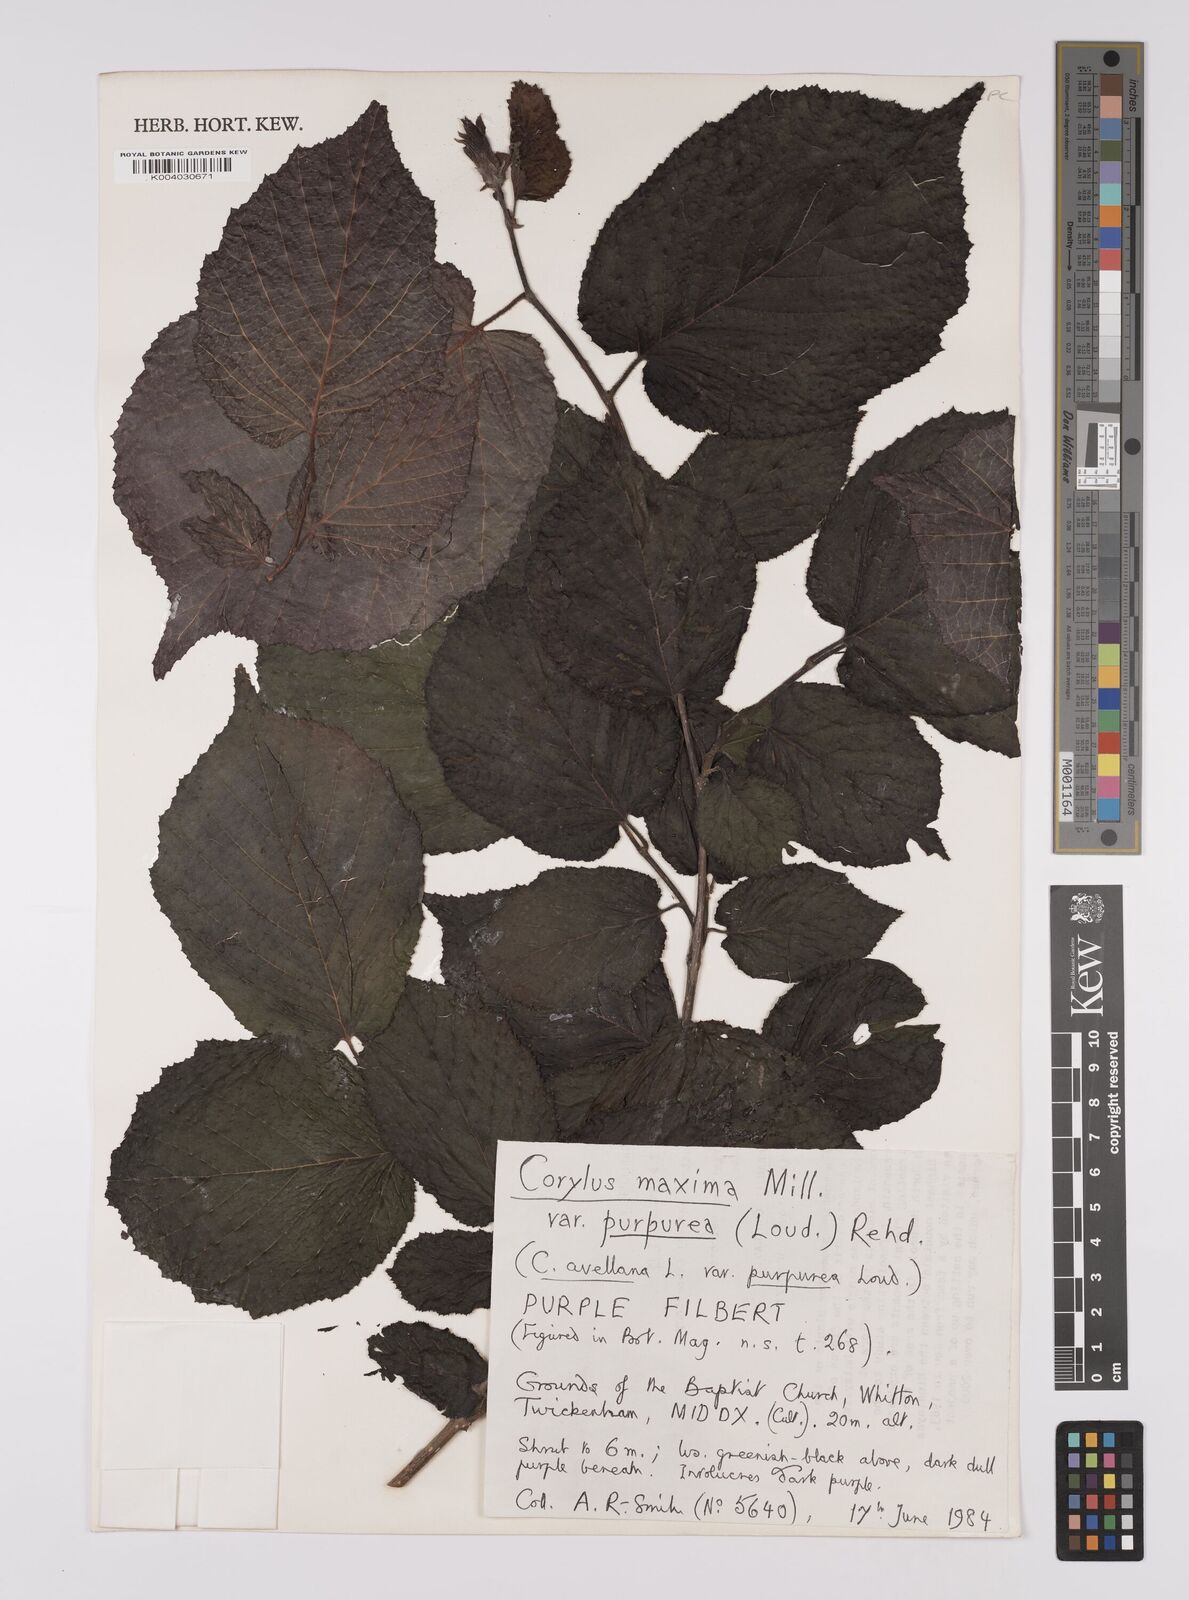 HERB. HORT. KEW.
ROYAL BOTANIC GARDENS KEW
K004030671
Corylus maxima Mill.
var. purpurea (Loud.) Rehd.
(C. avellana L. var. purpurea Loud.)
PURPLE FILBERT
(Figured in Bot. Mag. n.s. t. 268).
Grounds of the Baptist Church, Whitton,
Twickenham, MIDDX. (Cult.). 20m. alt.
Shrub to 6m.; lvs. greenish-black above, dark dull
purple beneath. Involucres dark purple.
Coll. A. R-Smith (No 5640), 17th June 1984
inches
Density
Don Williams
M001164
centimeters
Royal Botanic Gardens
Kew
0 1 2 3 4 5 6 7 8 9 10
copyright reserved